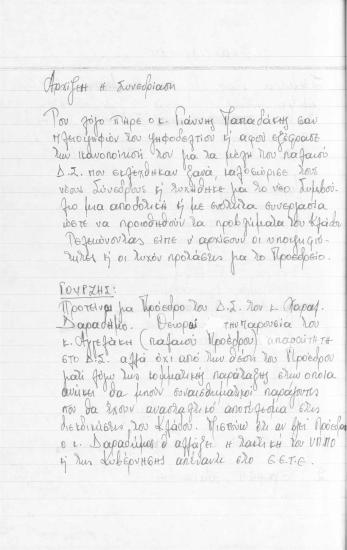 Αρχίζει η Συνεδρίαση
Τον λόγο πήρε ο κ. Γιάννης Παπαδάκης σαν
πλειοψηφών του ψηφοδελτίου κ αφού εξέφρασε
την ικανοποίησή του για τα μέλη του παλαιού
Δ.Σ. που εκλέχθηκαν ξανά, καλοσώρισε τους
νέους Συνέδρους κ ευχήθηκε για το νέο Συμβού-
λιο μια αποδοτική κ με ενότητα συνεργασία
ώστε να προωθηθούν τα προβλήματα του Κλάδου.
Τελειώνοντας είπε ν' αρχίσουν οι υποψηφιό-
τητες κ οι τυχόν προτάσεις για το Προεδρείο.
ΓΟΥΡΖΗΣ:
Προτείνει για Πρόεδρο του Δ.Σ. τον κ. Χαραλ.
Δαραδήμο. Θεωρεί την παρουσία του
κ. Αγγελάκη (παλαιού Προέδρου) απαραίτητη
στο Δ.Σ. αλλά όχι από την θέση του Προέδρου
γιατί λόγω της κομματικής παράταξης στην οποία
ανήκει θα μπουν συναισθηματικοί παράγοντες
που θα έχουν ανασταλτικό αποτέλεσμα στις
διεκδικήσεις του Κλάδου. Πιστεύω ότι αν βγει Πρόεδρος
ο κ. Δαραδήμος θ' αλλάξει η τακτική του ΥΠ.ΠΟ
κ της Κυβέρνησης απέναντι στο Σ.Ε.Τ.Ε.